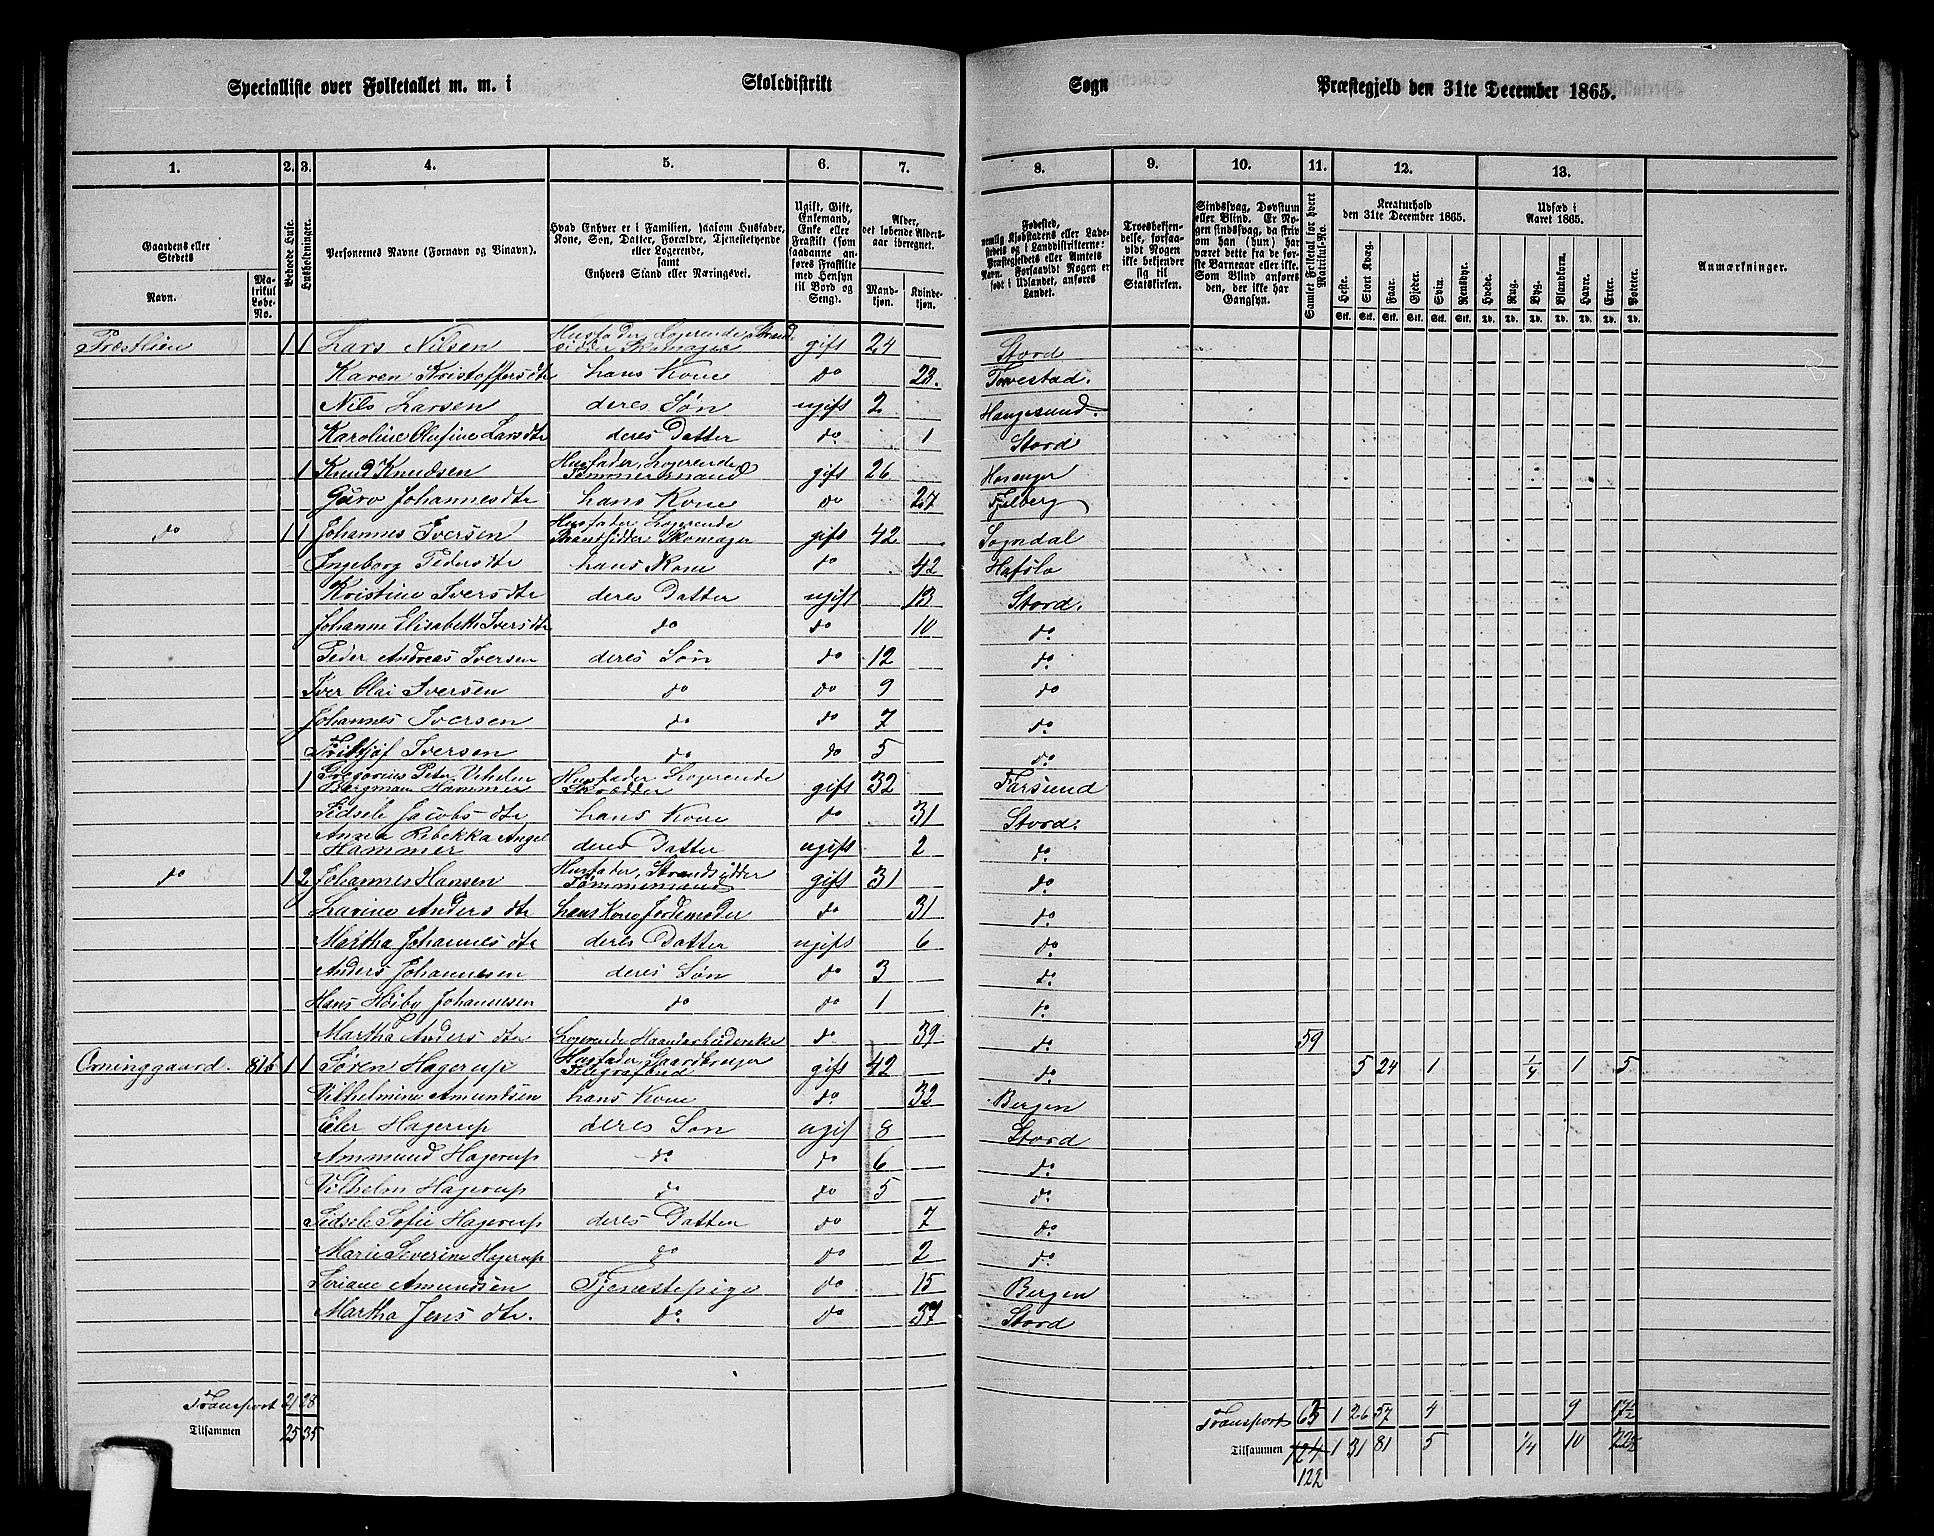 Specialliste over Folketallet m. m. i Skoledistrikt Sogn Præstegjeld den 31te December 1865.
1. 2. 3. 4. 5. 6. 7. 8. 9. 10. 11. 12. 13.
Gaardens eller Stedets
Navn.
Matrikul Løbe-No.
Beboede Huse.
Husholdninger.
Personernes Navne (Fornavn og Tilnavn).
Hvad Enhver er i Familien, saasom Husfader, Kone, Søn, Datter, Forældre, Tjenestetyende eller Logerende,
samt
Enhvers Stand eller Næringsvei.
Ugift, Gift, Enkemand, Enke eller Fraskilt (som saadanne anføres Fraskilte med Hensyn til Bord og Seng).
Alder, det løbende Aldersaar iberegnet.
Mandkjøn.
Kvindekjøn.
Fødested,
nemlig Kjøbstadens eller Ladestedets og i Landdistrikterne: Præstegjeldets eller Amtets Navn. Forsaavidt Nogen er født i Udlandet, anføres Landet.
Troesbekjendelse, forsaavidt Nogen ikke bekjender sig til Statskirken.
Sindssvag, Døvstum eller Blind. Er Nogen sindssvag, da skriv om han (hun) har været dette fra de første Barneaar eller ikke. Som Blind anføres den, der ikke har Gangsyn.
Samlet Folketal for hvert Matrikul-No.
Kreaturhold den 31te December 1865.
Heste. Stort Kvæg. Faar. Gjeder. Svin. Rensdyr.
Stk. Stk. Stk. Stk. Stk. Stk.
Udsæd i Aaret 1865.
Hvede. Rug. Byg. Blandkorn. Havre. Erter. Poteter.
Td. Td. Td. Td. Td. Td. Td.
Anmærkninger.
Præstlien 1 1 Lars Nilsen Husfader, Logerende, Strandsidder Skomager gift 24 Stord
Karen Kristoffersdtr hans Kone do 23. Torvestad.
Nils Larsen deres Søn ugift 2 Haugesund.
Karoline Olufine Larsdtr deres Datter do 1 Stord
1 Knud Knudsen Husfader, Logerende Tømmermand gift 26 Hosanger
Guro Johannesdtr hans Kone do 27 Fjelberg
do 1 1 Johannes Iversen Husfader, Logerende Strandsidder Skomager gift 42 Sogndal
Ingeborg Pedersdtr hans Kone do 42 Hafslo
Kristine Iversdtr deres Datter ugift 13 Stord.
Johanne Elisabeth Iversdtr do do 10 do
Peder Andreas Iversen deres Søn do 12 do
Iver Olai Iversen do do 9 do
Johannes Iversen do do 7 do
Fritjof Iversen do do 5 do
1 Gregorius Peter Vihelm Bergmann Hammer Husfader Logerende Skrædder gift 32 Farsund
Sidsele Jacobsdtr hans Kone do 31 Stord.
Anna Rebekka Angel Hammer deres Datter ugift 2 do
do 1 2 Johannes Hansen Husfader, Strandsidder Tømmermand gift 31 do
Lavine Andersdtr hans Kone Jordemoder do 31 do
Martha Johannesdtr deres Datter ugift 6 do
Anders Johannesen deres Søn do 3 do
Hans Høiby Johannesen do do 1 do
Martha Andersdtr Logerende Haandarbeiderske do 39 do 59
Orninggaard. 816 1 1 Søren Hagerup Husfader, Gaardbruger Telegrafbud gift 42 do 5 24 1 1/4 1 5
Vilhelmine Amundsen hans Kone do 32 Bergen
Eiler Hagerup deres Søn ugif 8 Stord
Ammund Hagerup do do 6 do
Vilhelm Hagerup do do 5 do
Sidsele Sofie Hagerup deres Datter do 7 do
Marie Severine Hagerup do do 2 do
Soriane Amundsen Tjenestepige do 15 Bergen
Martha Jensdtr. do do 57 Stord
Transport 21 28 Transport 63 1 26 57 4 9 17½
Tilsammen 25 35 Tilsammen 124 1 31 81 5 1/4 10 22½
122